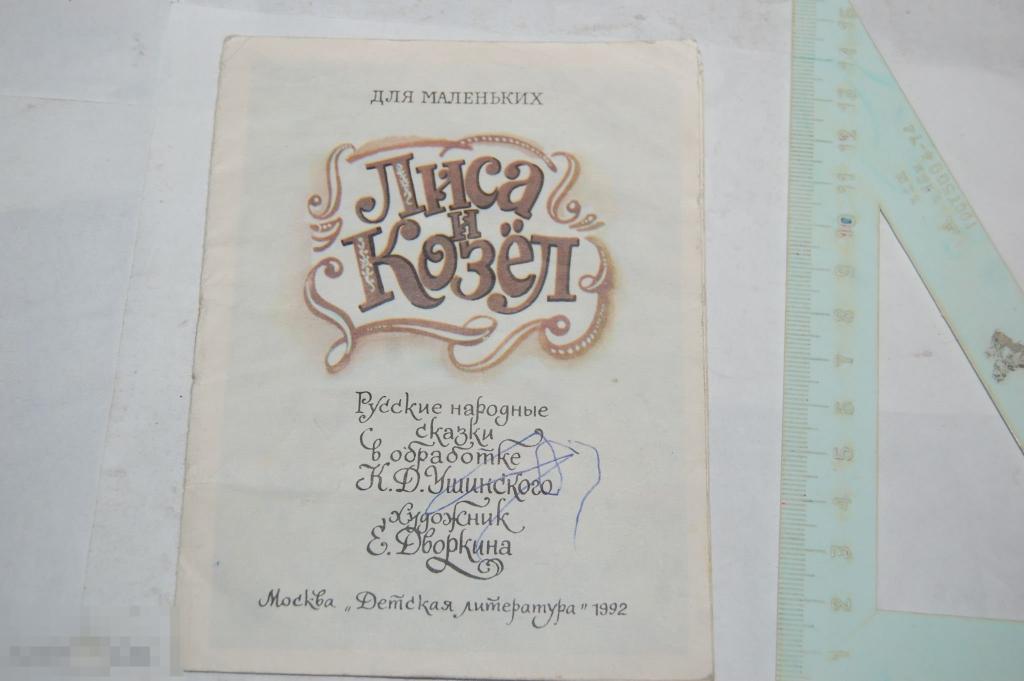 ДЛЯ МАЛЕНЬКИХ
Лиса
и
Козёл
Русские народные
сказки
в обработке
К.Д.Ушинского
художник
Е.Дворкина
Москва „Детская литература" 1992
15
14
13
12
11
10
9
8
7
6
5
4
3
2
1